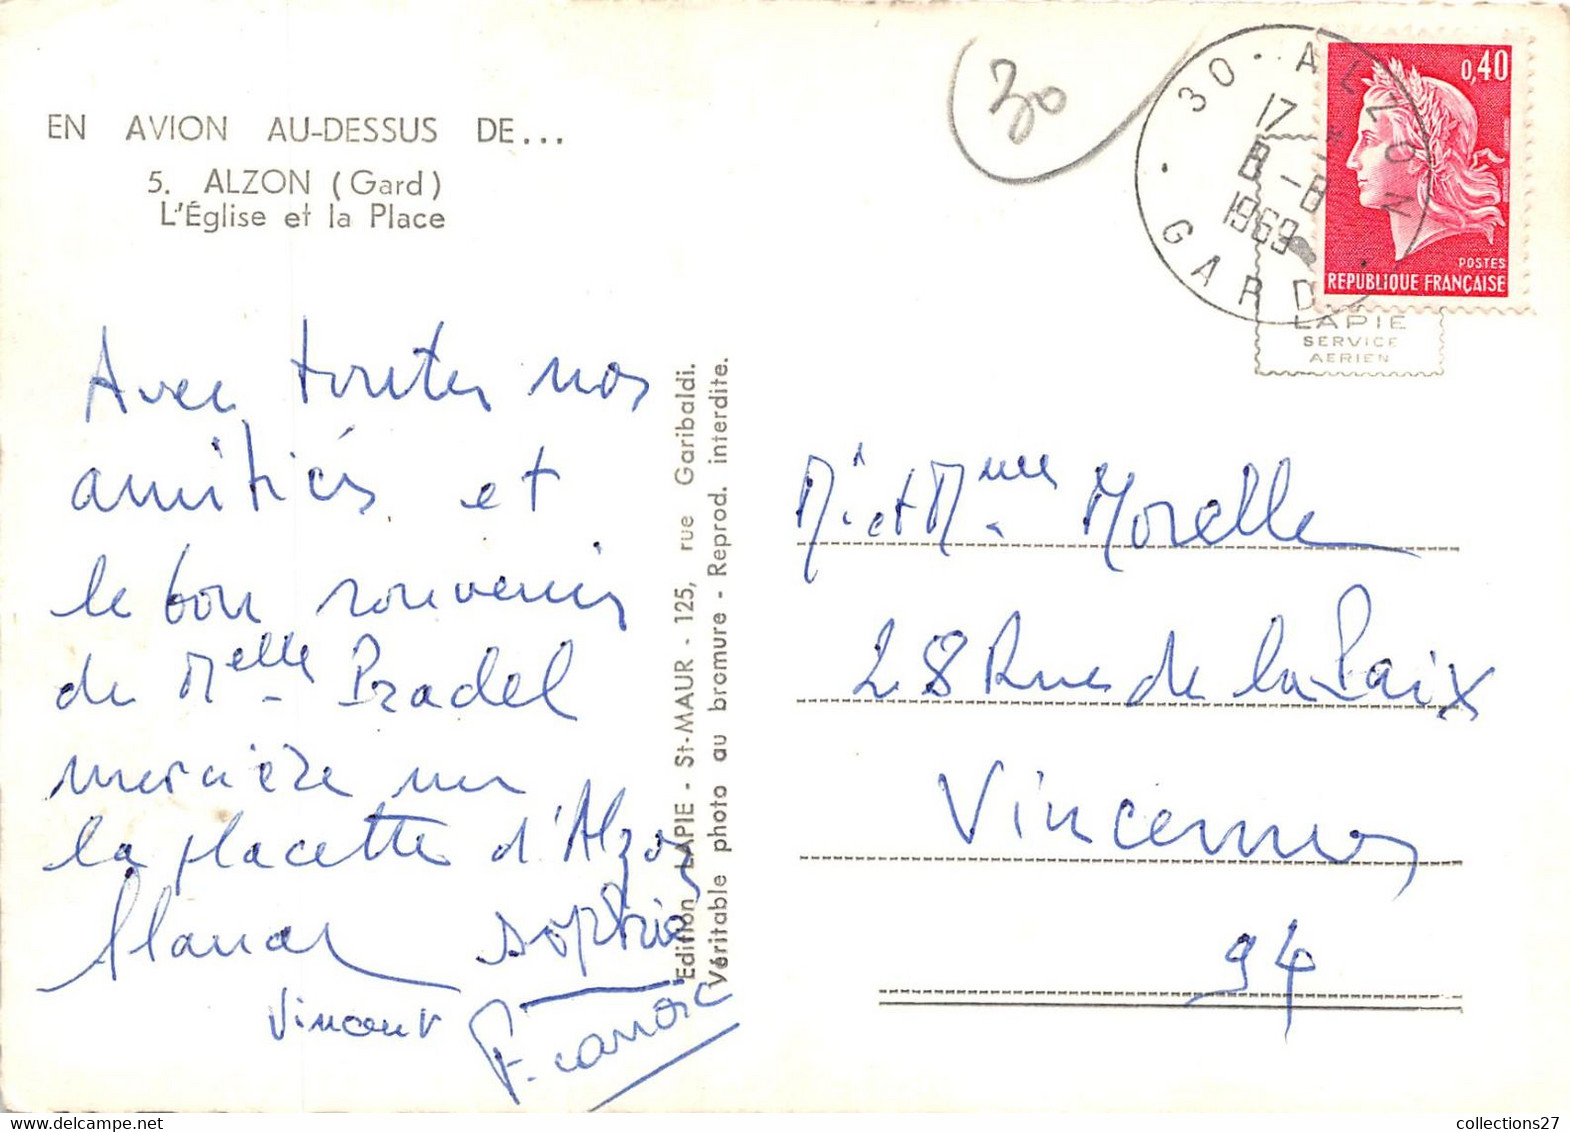 EN AVION AU-DESSUS DE...
5. ALZON (Gard)
L'Église et la Place
30
30 · ALZON
17 H
8 - 8
1969
GARD
0,40
POSTES
REPUBLIQUE FRANÇAISE
LAPIE
SERVICE
AERIEN
Avec toutes nos
amitiés et
le bon souvenir
de Melle Pradel
mercière sur
la placette d'Alzon
Sophie
Vincent
Edition LAPIE - St-MAUR - 125, rue Garibaldi.
Véritable photo au bromure - Reprod. interdite.
Mr et Mme Morelle
28 Rue de la Paix
Vincennes
94
collections27